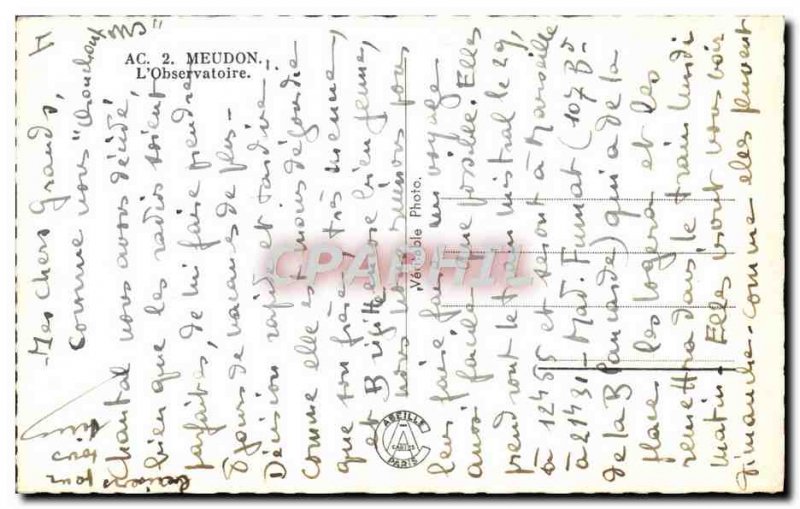 AC. 2. MEUDON.
L'Observatoire.
Véritable Photo.
ABEILLE
CARTES
PARIS
CPARHIL
Mes chers Grands,
Comme nous
Chantal nous avons décidé,
bien que les radios soient
parfaites, de lui faire prendre
8 jours de vacances de plus -
Décision rapide et tardive.
Comme elle est moins dégourdie
que son frère très
et Brigitte bien jeune,
nous nous pour
leur faire faire un voyage
aussi facile que possible. Elles
prendront le train mistral le 29,
à 12 h 55 et seront à Marseille
à 21 h 31 - Mad. Fumat (107 Bd
de la Blancarde) qui a de la
place les logera et les
remettra dans le train lundi
matin - Elles iront vous voir
dimanche - comme elles peuvent
baisers pour
tous